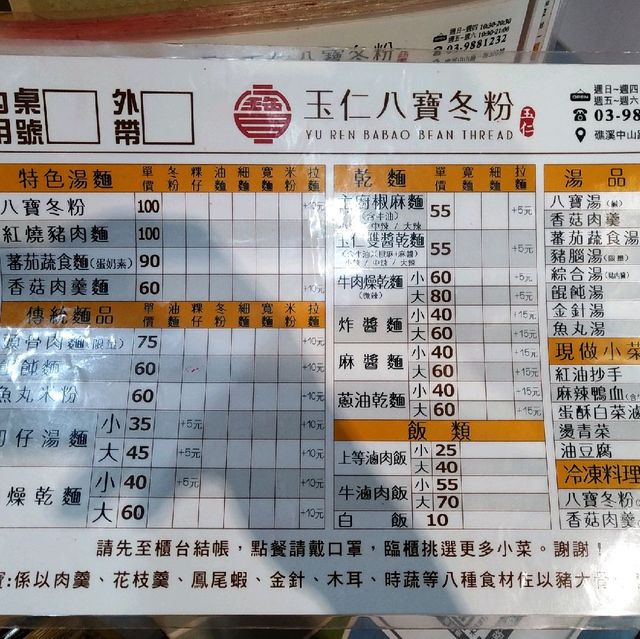 週日~週四 10:30-20:30
週五~週六 10:30-21:00
03-9881232
八寶冬粉
桌號
外帶
玉仁八寶冬粉 玉仁
YU REN BABAO BEAN THREAD
OPEN 週日~週四
週五~週六
03-98
礁溪中山
特色湯麵 單價 冬粉 粿仔 油麵 細麵 寬麵 米粉 拉麵
八寶冬粉 100 +10元
紅燒豬肉麵 100
蕃茄蔬食麵(蛋奶素) 90
香菇肉羹麵 60 +10元
傳統麵品 單價 油麵 粿仔 冬粉 細麵 寬麵 米粉 拉麵
骨肉麵(限量) 75 +10元
餛飩麵 60 +10元
魚丸米粉 60 +10元
切仔湯麵 小 35 +5元 +10元
大 45 +5元 +10元
燥乾麵 小 40 +5元 +10元
大 60 +10元
乾麵 單價 油麵 細麵 寬麵 拉麵
主廚椒麻麵 55 +5元
(含牛油)
中辣 / 大辣
玉仁雙醬乾麵 55 +5元
中辣 / 大辣
牛肉燥乾麵 小 60 +5元
(微辣) 大 80 +5元
炸醬麵 小 40 +15元
大 60 +15元
麻醬麵 小 40 +15元
大 60 +15元
蔥油乾麵 小 40 +15元
大 60 +15元
飯類
上等滷肉飯 小 25
大 40
牛滷肉飯 小 55
大 70
白飯 10
湯品
八寶湯
香菇肉羹
蕃茄蔬食湯
豬腦湯(限量)
綜合湯
餛飩湯
金針湯
魚丸湯
現做小菜
紅油抄手
麻辣鴨血
蛋酥白菜滷
燙青菜
油豆腐
冷凍料理
八寶冬粉
香菇肉羹
請先至櫃台結帳，點餐請戴口罩，臨櫃挑選更多小菜。謝謝！
寶:係以肉羹、花枝羹、鳳尾蝦、金針、木耳、時蔬等八種食材在以豬大